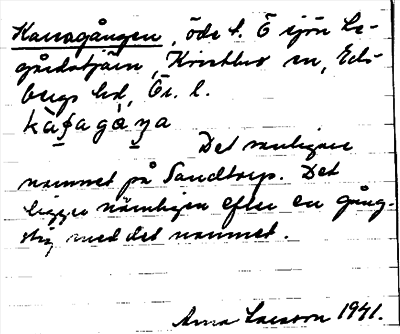 Karragången, öde t. Ö sjön Le-
gårdstjärn, Kvistbro sn, Eds-
bergs hd, Ör. l.
Det vanligare
namnet på Sandtorp. Det
ligger nämligen efter en gång-
stig med det namnet.
Anna Larsson 1941.